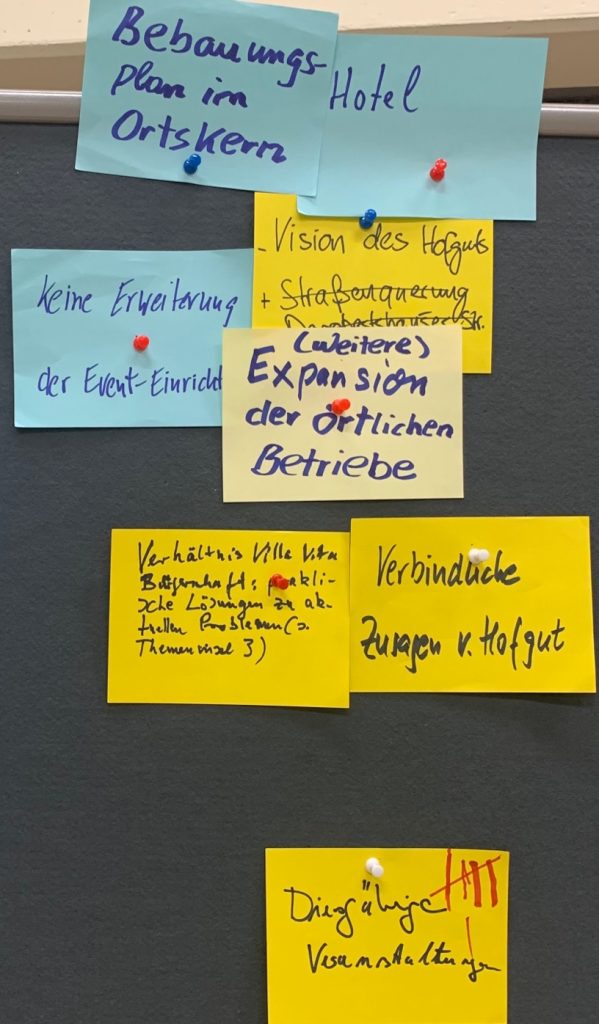 Bebauungs-
plan im
Ortskern
Hotel
- Vision des Hofguts
+ Straßenquerung
Str.
keine Erweiterung
der Event-Einricht
(weitere)
Expansion
der örtlichen
Betriebe
Verhältnis Villa Vita
Bürgerschaft: prakti-
sche Lösungen zu ak-
tuellen Problemen (s.
Themeninsel 3)
Verbindliche
Zusagen v. Hofgut
Veranstaltungen